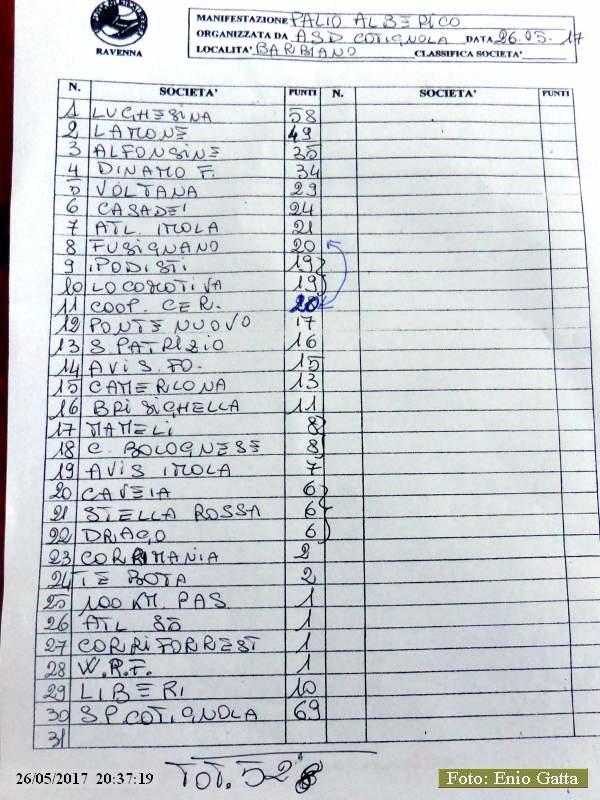 RAVENNA
MANIFESTAZIONE PALIO ALBERICO
ORGANIZZATA DA ASD COTIGNOLA DATA 26.05.17
LOCALITA' BARBIANO CLASSIFICA SOCIETA'
N. SOCIETA' PUNTI N. SOCIETA' PUNTI
1 LUGHESINA 58
2 LAMONE 49
3 ALFONSINE 35
4 DINAMO F. 34
5 VOLTANA 29
6 CASADEI 24
7 ATL. IMOLA 21
8 FUSIGNANO 20
9 IPODISTI 19
10 LOCOMOTIVA 19
11 COOP. CER. 20
12 PONTE NUOVO 17
13 S. PATRIZIO 16
14 AVIS. FO. 15
15 CAMERLONA 13
16 BRISIGHELLA 11
17 MAMELI 8
18 C. BOLOGNESE 8
19 AVIS IMOLA 7
20 CAVEIA 6
21 STELLA ROSSA 6
22 DRAGO 6
23 CORRIMANIA 2
24 TE BOTA 2
25 100 KM. PAS 1
26 ATL 85 1
27 CORRIFORREST 1
28 W.R.F. 1
29 LIBERI 10
30 S.P. COTIGNOLA 69
31
TOT. 528
26/05/2017 20:37:19
Foto: Enio Gatta